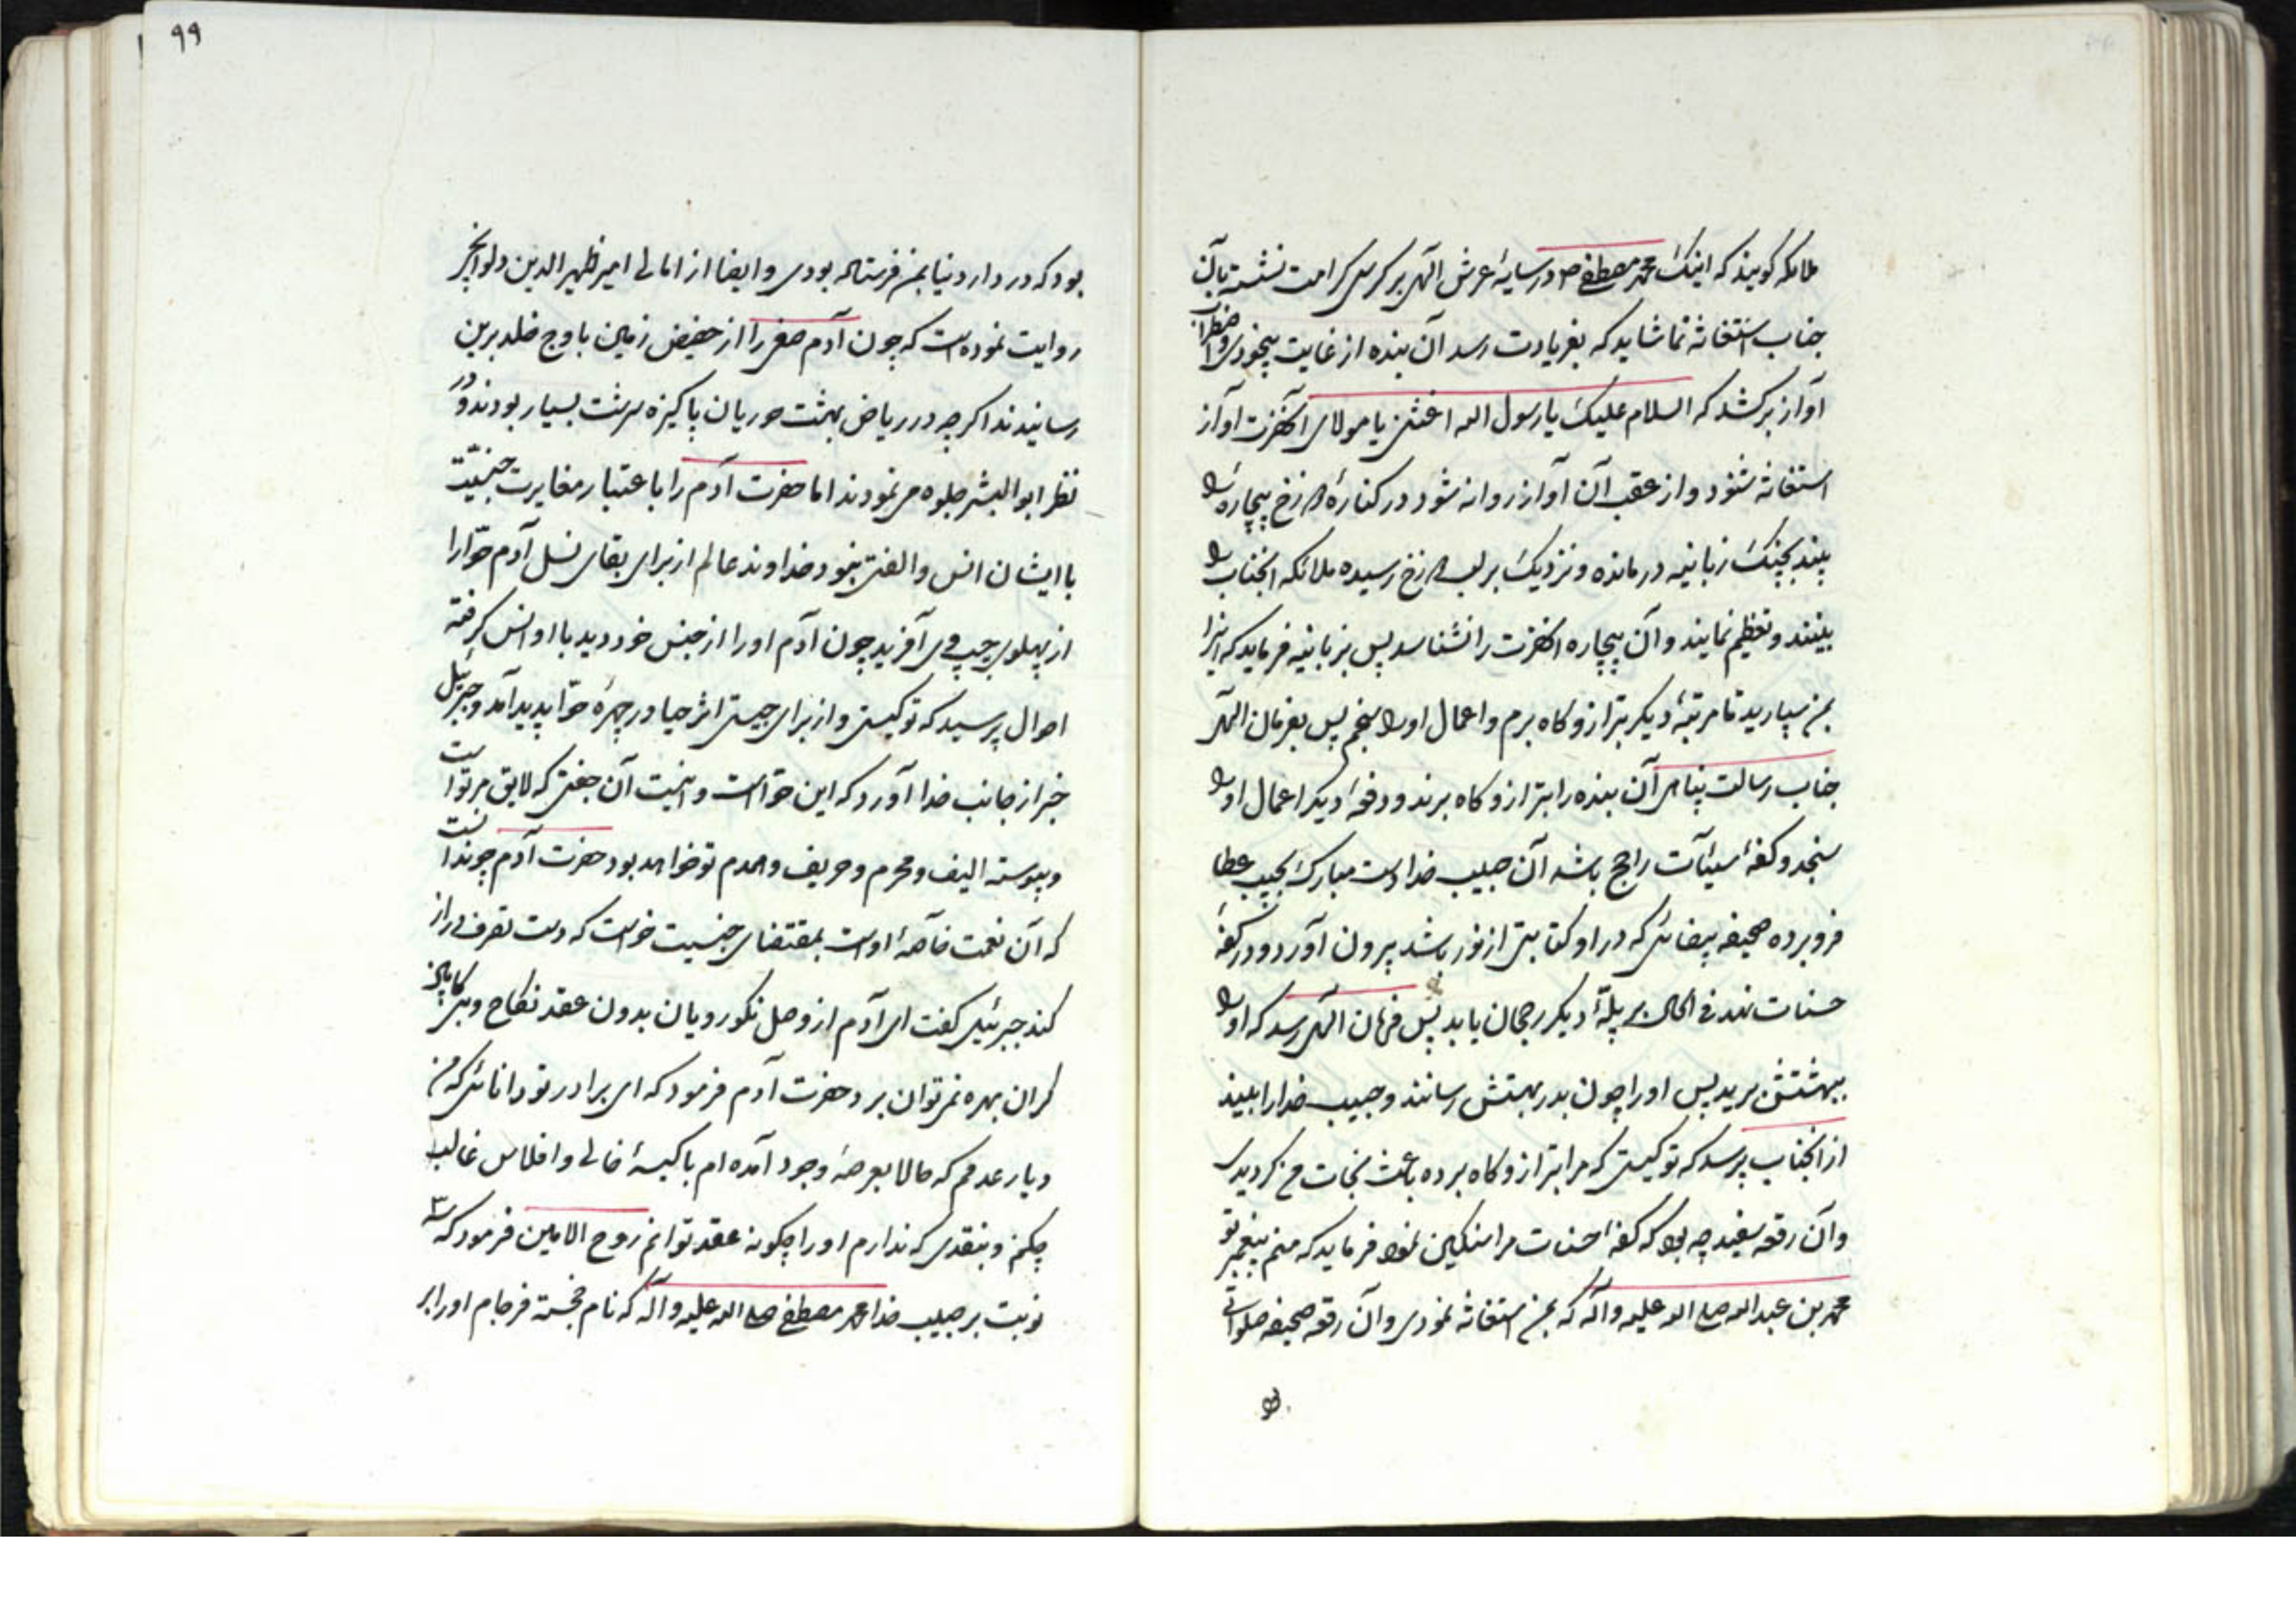 ملائکه گویند که اینک محمد مصطفی ص در سایهٔ عرش الهی بر کرسی کرامت نشسته بآن
جناب استغاثه نما شاید که بفریادت رسد آن بنده از غایت بیخودی و اضطراب
آواز برکشد که السلام علیک یا رسول الله اغثنی یا مولای آنحضرت آواز
استغاثه شنود و از عقب آن آواز روانه شود در کنارهٔ دوزخ بیچارهٔ را
بیند بچنک زبانیه درمانده و نزدیک بر لب دوزخ رسیده ملائکه آنجناب را
بینند و تعظیم نمایند و آن بیچاره آنحضرت را نشناسد پس بزبانیه فرماید که اینرا
بمن سپارید تا مرتبهٔ دیکر بترازوکاه برم و اعمال او را سنجم پس بفرمان الهی
جناب رسالت پناهی آن بنده را بترازوکاه برند و دفعهٔ دیکر اعمال او را
سنجد و کفهٔ سیئآت راجح باشد آن حبیب خدا دست مبارک بجیب عطا
فرو برده صحیفه بیضائی که در او کتابتی از نور باشد بیرون آورد و در کفهٔ
حسنات نهد فی الحال بر پلهٔ دیکر رجحان یابد پس فرمان الهی رسد که او را
ببهشتش برید پس او را چون بدر بهشتش رسانند و حبیب خدا را ببیند
از آنجناب پرسد که تو کیستی که مرا بترازوکاه برده باعث نجات من کردیدی
و آن رقعه سفید چه بود که کفهٔ حسنات مرا سنکین نمود فرماید که منم پیغمبر تو
محمد بن عبدالله صلی الله علیه وآله که بمن استغاثه نمودی و آن رقعه صحیفه صلواتی
۹۹
بود که در دار دنیا بمن فرستاده بودی و ایضا از امالی امیر ظهیرالدین
روایت نموده است که چون آدم صفی را از حضیض زمین باوج خلد برین
رسانیدند اکرچه در ریاض بهشت حوریان پاکیزه سرشت بسیار بودند و در
نظر ابوالبشر جلوه می نمودند اما حضرت آدم را باعتبار مغایرت جنسیت
با ایشان انس و الفتی نبود خداوند عالم از برای بقای نسل آدم حوّا را
از پهلوی چپ وی آفرید چون آدم او را از جنس خود دید با او انس کرفته
احوال پرسید که تو کیستی و از برای چیستی اثر حیا در چهرهٔ حوّا پدید آمد و جبرئیل
خبر از جانب خدا آورد که این حوّاست و اینست آن جفتی که لایق مر تو است
و پیوسته الیف و محرم و حریف و همدم تو خواهد بود حضرت آدم چو ندانست
که آن نعمت خاصهٔ اوست بمقتضای جنسیت خواست که دست تصرف دراز
کند جبرئیل کفت ای آدم از وصل نکورویان بدون عقد نکاح و بی کابین
کران بهره نمیتوان برد حضرت آدم فرمود که ای برادر تو دانائی که من
دیار عدمم که حالا بعرصهٔ وجود آمده ام با کیسهٔ خالی و افلاس غالب
چکنم و بنقدی که ندارم او را چکونه عقد توانم روح الامین فرمود که سه
نوبت بر حبیب خدا محمد مصطفی صلی الله علیه وآله که نام خجسته فرجام او را بر